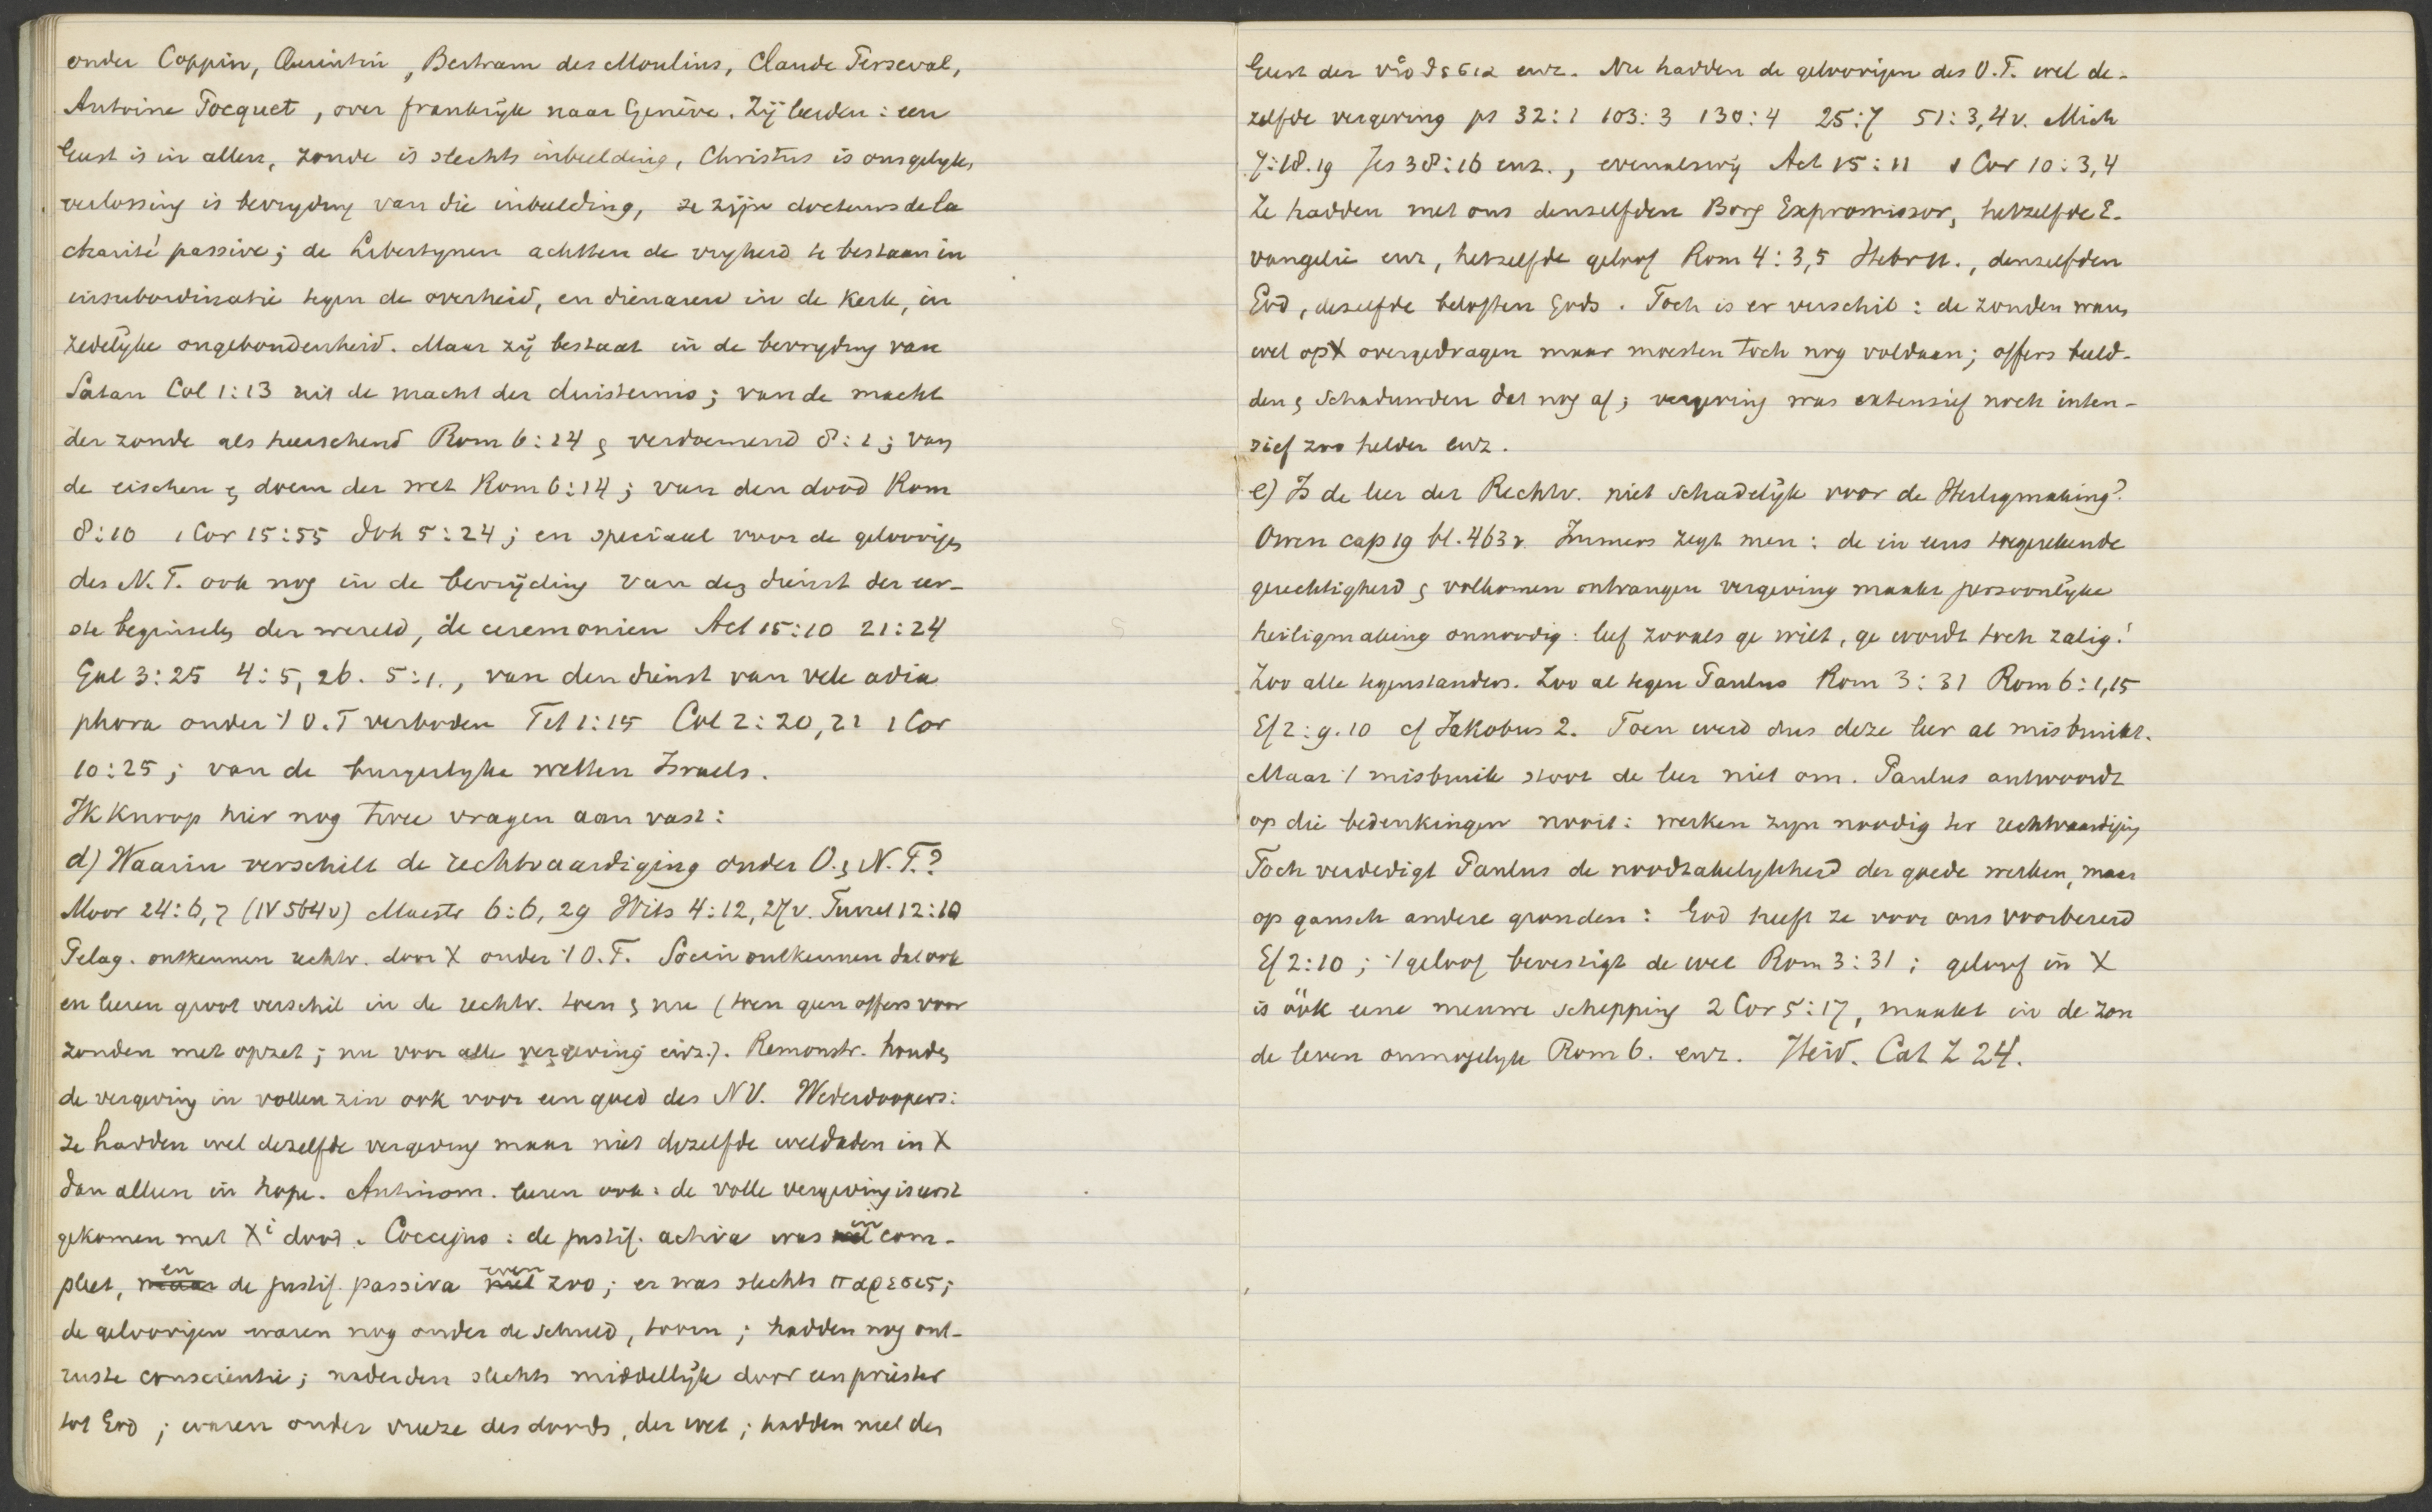 onder Coppin, Quintin, Bertram des Moulins, Claude Perseval,
Antoine Pocquet, over frankryk naar Genève. Zij leerden: een
Geest is in allen, zonde is slechts inbeelding, Christus is ons gelyk,
verlossing is bevryding van die inbeelding, ze zijn docteurs de la
charité passive; de Libertynen achtten de vryheid te bestaan in
insubordinatie tegen de overheid, en dienaren in de Kerk, in
zedelyke ongebondenheid. Maar zij bestaat in de bevryding van
Satan Col 1:13 uit de macht der duisternis; van de macht
der zonde als heerschend Rom 6:14 & verdoemend 8:1; van
de eischen & doem der wet Rom 6:14; van den dood Rom
8:10 1 Cor 15:55 Joh 5:24; en speciaal voor de geloovigen
des N.T. ook nog in de bevrijding van den dienst der eer-
ste beginselen der wereld, de ceremonien Act 15:10 21:24
Gal 3:25 4:5, 26. 5:1., van den dienst van vele adia
phora onder 't O.T verboden Tit 1:15 Col 2:20, 21 1 Cor
10:25; van de burgerlyke wetten Israels.
Ik knoop hier nog twee vragen aan vast:
d) Waarin verschilt de rechtvaardiging onder O. & N.T.?
Moor 24:6,7 (IV 564v) Maestr 6:6, 29 Wits 4:12, 27v. Turret 12:10
Pelag. ontkennen rechtv. door X onder 't O.T. Socin ontkennen dat ook
en leeren groot verschil in de rechtv. toen & nu (toen geen offers voor
zonden met opzet; nu voor alle vergeving enz.). Remonstr. houden
de vergeving in vollen zin ook voor een goed des NV. Wederdoopers:
ze hadden wel dezelfde vergeving maar niet dezelfde weldaden in X
dan alleen in hope. Antinom. leeren ook: de volle vergeving is eerst
gekomen met Xi dood. Coccejus: de justif. activa was in com-
pleet, en de justif. passiva even zoo; er was slechts παρεσις;
de geloovigen waren nog onder de schuld, toorn; hadden nog ont-
ruste conscientie; naderden slechts middellijk door een priester
tot God; waren onder vreeze des doods, der wet; hadden niet den
Geest der υἱοθεσια enz. Nu hadden de geloovigen des O.T. wel de-
zelfde vergeving ps 32:1 103:3 130:4 25:7 51:3,4v. Mich
7:18.19 Jes 38:16 enz., evenals wij Act 15:11 1 Cor 10:3,4
Ze hadden met ons denzelfden Borg Expromissor, hetzelfde E-
vangelie enz, hetzelfde geloof Rom 4:3,5 Hebr 11., denzelfden
God, dezelfde beloften Gods. Toch is er verschil: de zonden waren
wel op X overgedragen maar moesten toch nog voldaan; offers beeld-
den & schaduwden dat nog af; vergeving was extensief noch inten-
sief zoo helder enz.
e) Is de leer der Rechtv. niet schadelijk voor de Heiligmaking?
Owen cap 19 bl. 463v. Immers zegt men: de in eens toegerekende
gerechtigheid & volkomen ontvangen vergeving maakt persoonlyke
heiligmaking onnoodig: leef zooals ge wilt, ge wordt toch zalig!
Zoo alle tegenstanders. Zoo al tegen Paulus Rom 3:31 Rom 6:1,15
Ef 2:9.10 cf Jakobus 2. Toen werd dus deze leer al misbruikt.
Maar 't misbruik stoot de leer niet om. Paulus antwoordt
op die bedenkingen nooit: werken zyn noodig ter rechtvaardiging
Toch verdedigt Paulus de noodzakelykheid der goede werken, maar
op gansch andere gronden: God heeft ze voor ons voorbereid
Ef 2:10; 't geloof bevestigt de wet Rom 3:31; geloof in X
is óók eene nieuwe schepping 2 Cor 5:17, maakt in de zon
de leven onmogelyk Rom 6. enz. Heid. Cat Z 24.